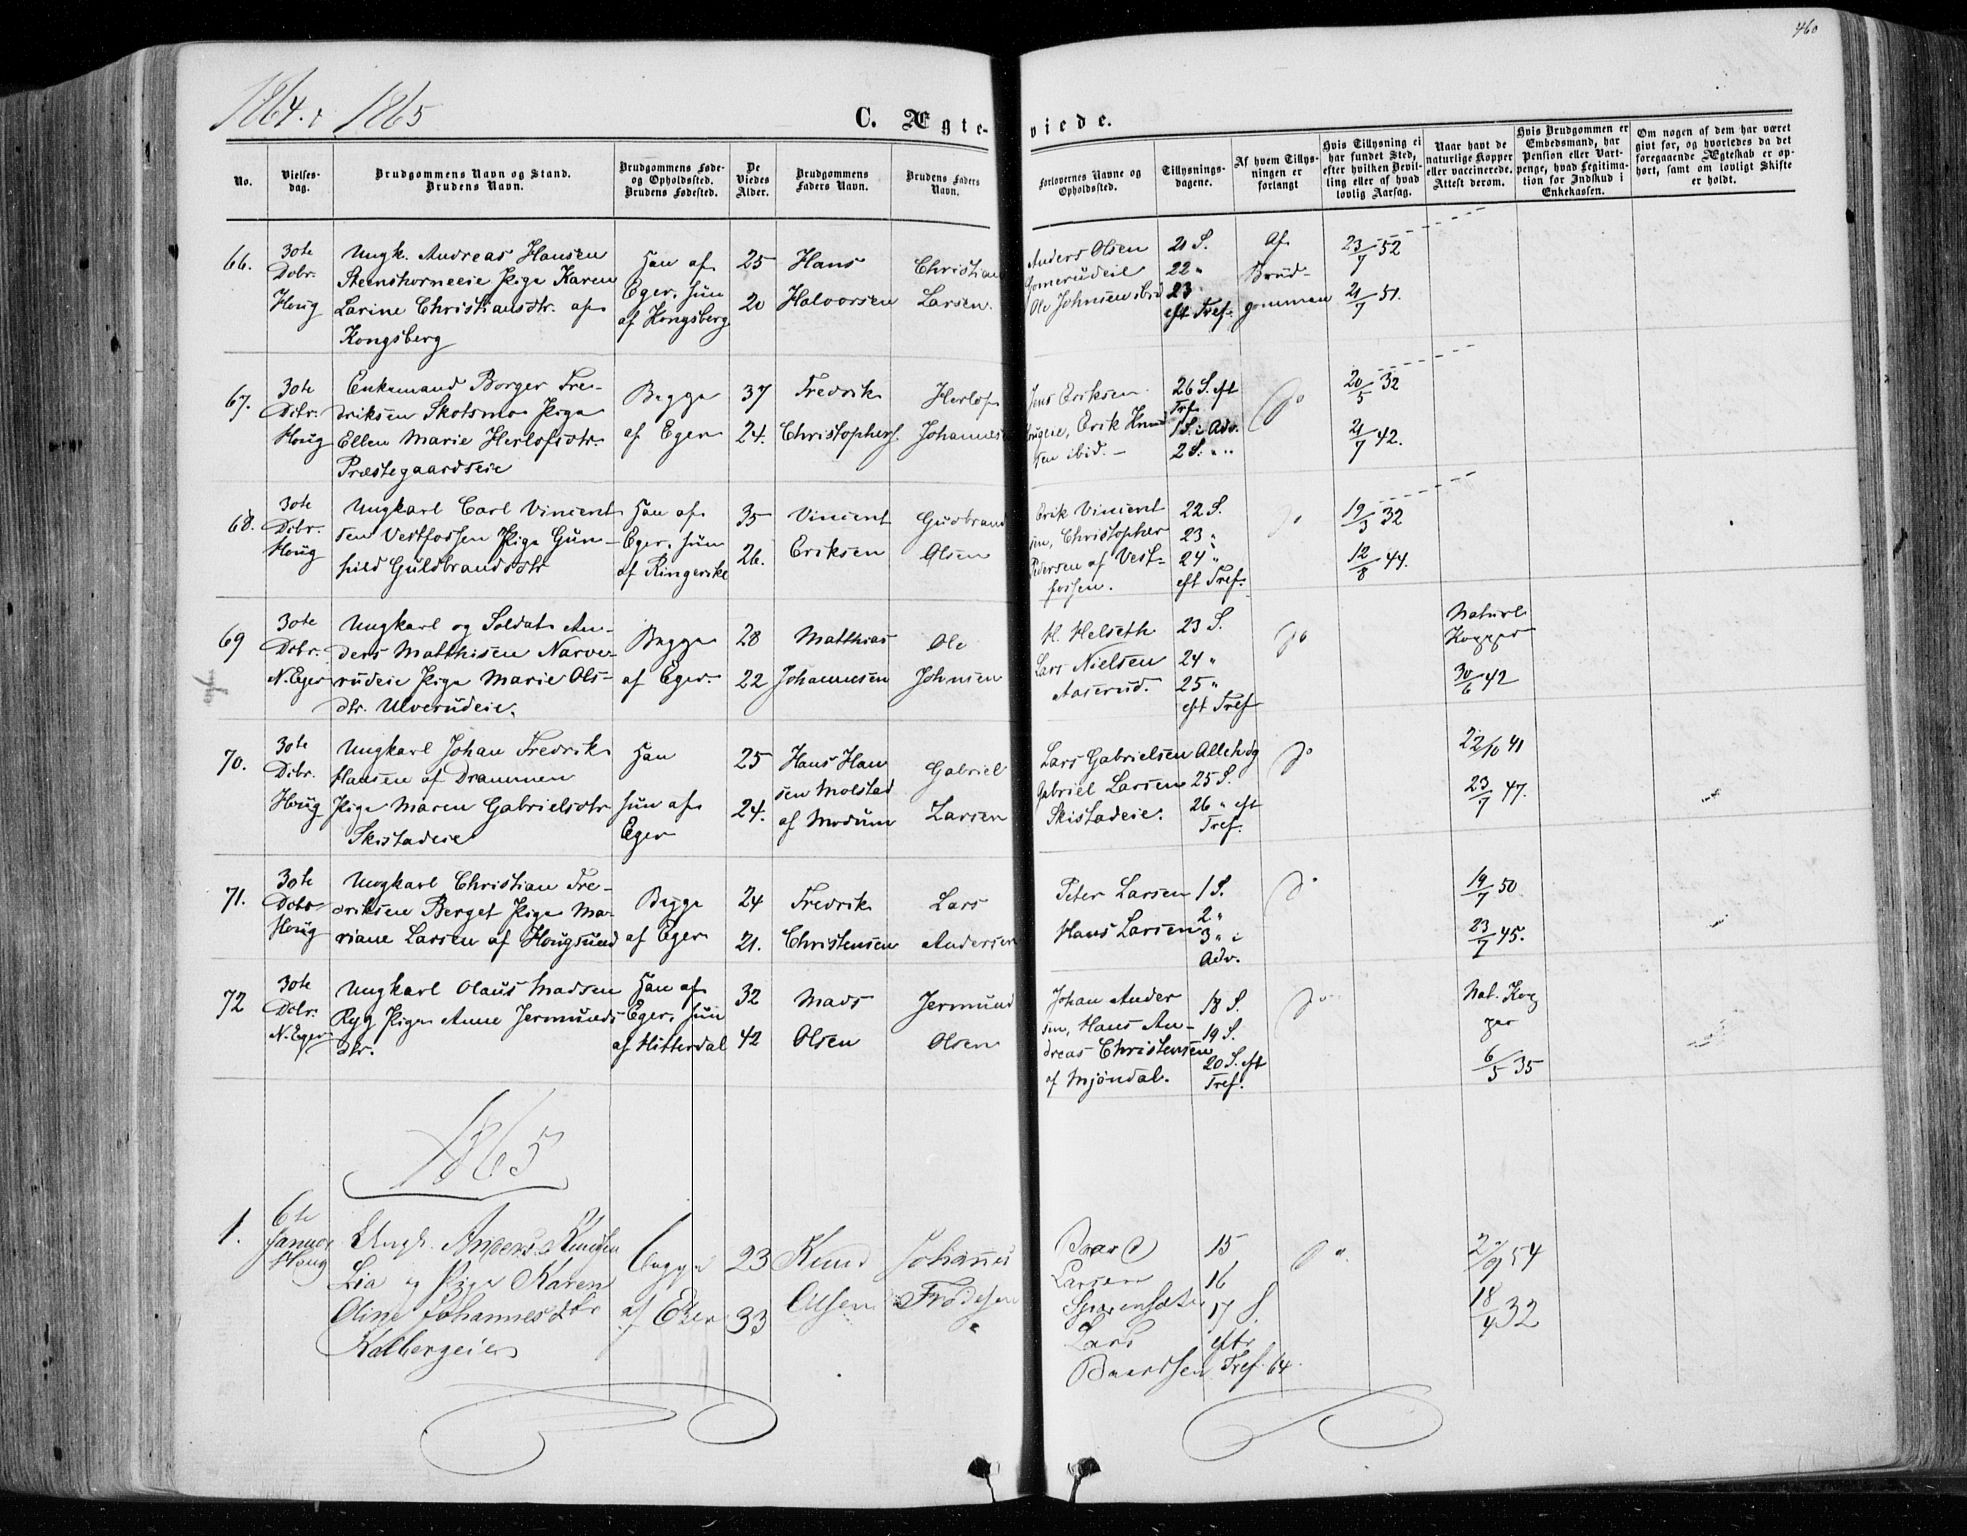 460
1864. & 1865
C. Ægte-
viede.
No.
Vielses-
dag.
Brudgommens Navn og Stand.
Brudens Navn.
Brudgommens Føde-
og Opholdssted.
Brudens Fødested.
De
Viedes
Alder.
Brudgommens
Faders Navn.
Brudens Faders
Navn.
Forlovernes Navne og
Opholdssted.
Tillysnings-
dagene.
Af hvem Tillys-
ningen er
forlangt
Hvis Tillysning ei
har fundet Sted,
efter hvilken Bevil-
ling eller af hvad
lovlig Aarsag.
Naar havt de
naturlige Kopper
eller vaccinerede.
Attest derom.
Hvis Brudgommen er
Embedsmand, har
Pension eller Vart-
penge, hvad Legitima-
tion for Indskud i
Enkekassen.
Om nogen af dem har været
givt før, og hvorledes da det
foregaaende Ægteskab er op-
hørt, samt om lovligt Skifte
er holdt.
66.
30te
Dcbr.
Houg
Ungk. Andreas Hansen
Steenshorneeie Pige Karen
Larine Christiansdtr. af
Kongsberg
Han af
Eger, hun
af Kongsberg
25
20
Hans
Halvorsen
Christian
Larsen.
Anders Olsen
Gomerudeie
Ole Johnsen ibid
21 S.
22 "
23
eft Tref.
Af
Brud-
gommen
23/7 52
21/7 51.
67.
30te
Dcbr.
Houg
Enkemand Borger Fre-
driksen Skotsmo Pige
Ellen Marie Herlofsdtr.
Præstegaardseie
Begge
af Eger
37
24.
Fredrik
Christophers.
Herlof
Johannesen
Jens Eriksen
Erik Knud
sen ibid. -
26 S. eft
Trf.
1 S. i Adv.
2 S. " "
Do
20/5 32
21/7 42.
68.
30te
Dcbr.
Houg
Ungkarl Carl Vincent
sen Vestfossen Pige Gun-
hild Guldbrandsdtr
Han af
Eger, hun
af Ringerike
35
26.
Vincent
Eriksen
Gudbrand
Olsen
Erik Vincent
sen, Christopher
Pedersen af Vest-
fossen.
22 S.
23 "
24 "
eft Tref.
Do
19/5 32
12/8 44.
69
30te
Dcbr.
N. Eger
Ungkarl og Soldat An-
ders Matthisen Narve-
rudeie Pige Marie Ols-
dtr. Ulverudeie.
Begge
af Eger.
28
22
Matthias
Johannesen
Ole
Johnsen
H. Helseth
Lars Nielsen
Aaserud.
23 S.
24 "
25 "
eft Tref
Do
Naturl
Kopper
30/6 42
70.
30te
Dcbr.
Houg
Ungkarl Johan Fredrik
Hansen af Drammen
Pige Maren Gabrielsdtr
Skistadeie
Han
hun af
Eger
25
24.
Hans Han
sen Molstad
af Modum
Gabriel
Larsen
Lars Gabrielsen
Gabriel Larsen
Skistadeie.
Alleh.dg
25 S.
26 " eft
Tref.
Do
22/10 41
23/7 47.
71.
30te
Dcbr
Houg
Ungkarl Christian Fre-
driksen Berget Pige Ma-
riane Larsen af Hougsund
Begge
af Eger
24
21.
Fredrik
Christensen
Lars
Andersen
Peter Larsen
Hans Larsen
1 S.
2 "
3 " i
Adv.
Do
19/7 50
23/7 45.
72
30te
Dcbr.
N. Eger
Ungkarl Olaus Madsen
Ryg Pige Anne Jermunds-
dtr.
Han af
Eger, hun
af Hitterdal
32
42
Mads
Olsen
Jermund
Olsen
Johan Ander
sen, Hans An-
dreas Christensen
af Mjøndal.
18 S.
19 S.
20 S. eft
Tref.
Do
Nat. Kop
per
6/5 35
1865
1.
6te
Januar
Houg
Ungk. Anders Knudsen
Lia og Pige Karen
Oline Johannesdtr
Kolbergeie
Begge
af Eger
23
33
Knud
Olsen
Johannes
Frodesen
Baard
Larsen
Lars
Baardsen
15
16
17 S.
eftr
Tref. 64.
Do
2/9 54
18/4 32